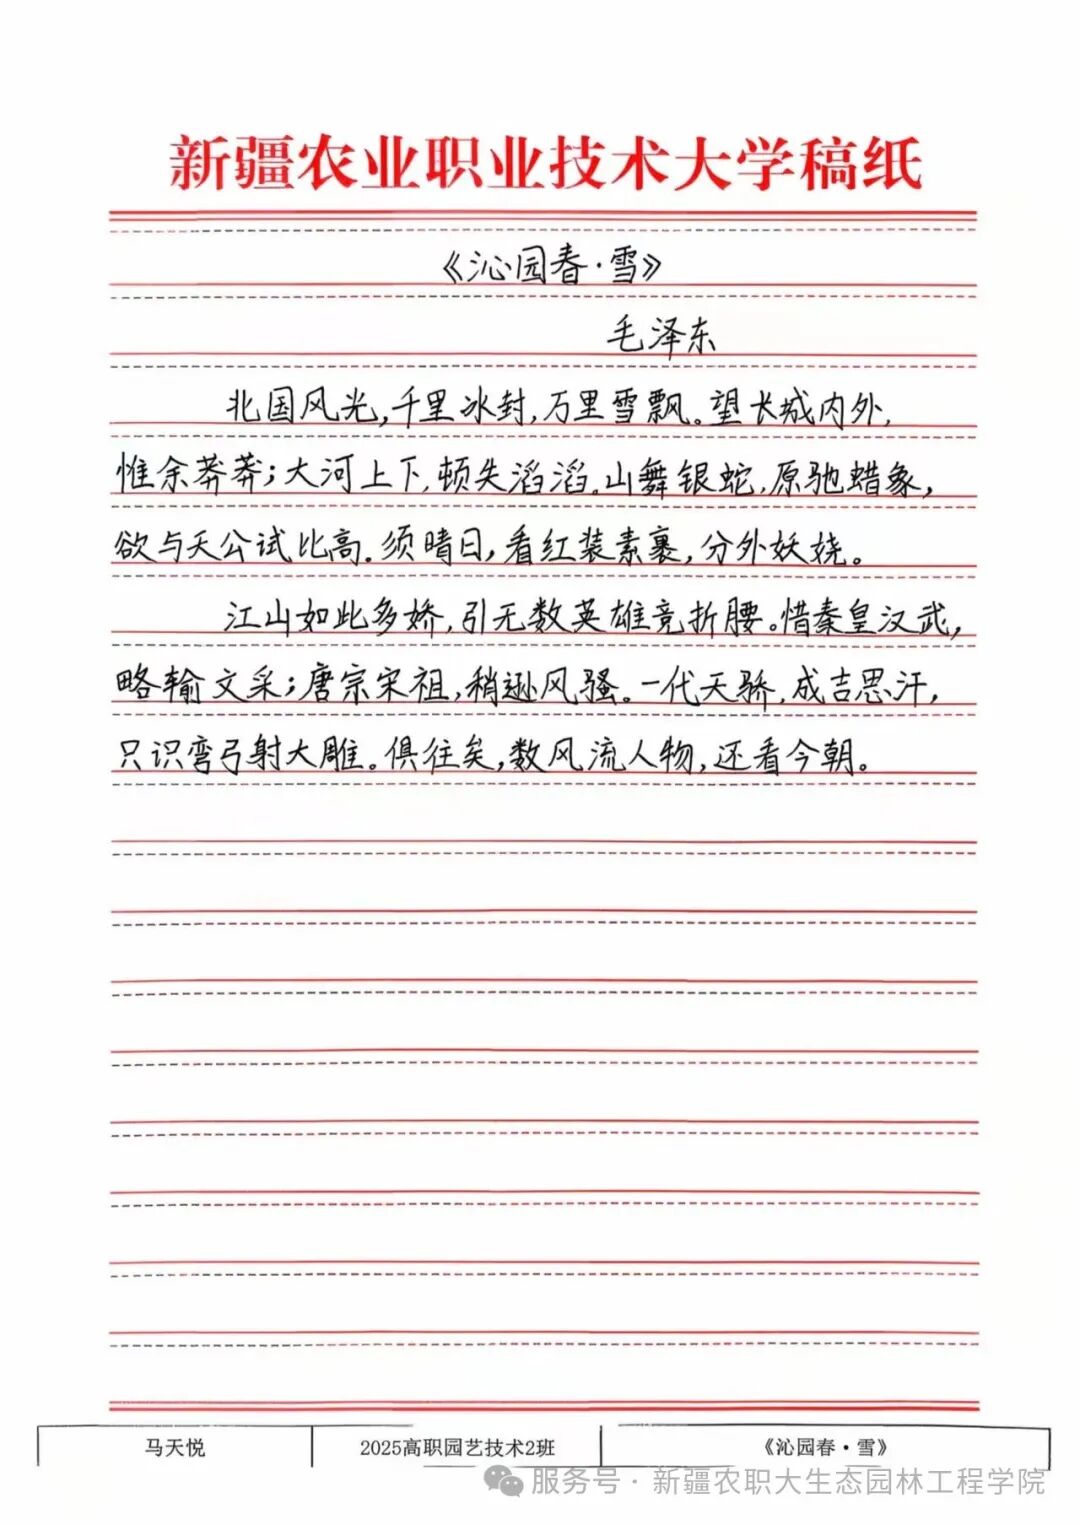 新疆农业职业技术大学稿纸
《沁园春·雪》
毛泽东
北国风光,千里冰封,万里雪飘。望长城内外,
惟余莽莽;大河上下,顿失滔滔。山舞银蛇,原驰蜡象,
欲与天公试比高。须晴日,看红装素裹,分外妖娆。
江山如此多娇,引无数英雄竞折腰。惜秦皇汉武,
略输文采;唐宗宋祖,稍逊风骚。一代天骄,成吉思汗,
只识弯弓射大雕。俱往矣,数风流人物,还看今朝。
马天悦 2025高职园艺技术2班 《沁园春·雪》
服务号·新疆农职大生态园林工程学院